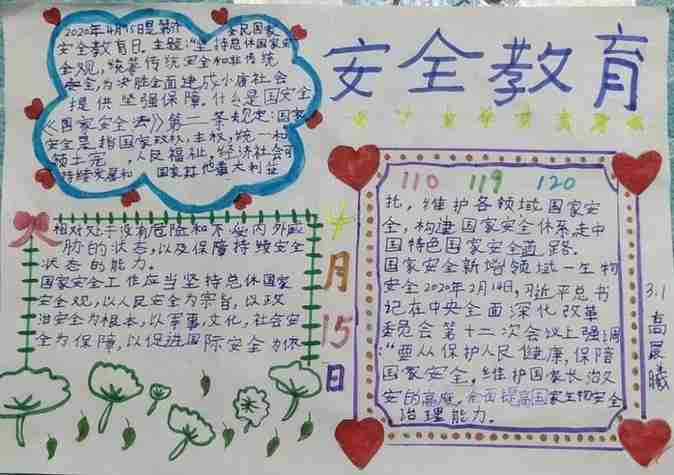 安全教育
2020年4月15日是第 全民国家
安全教育日。主题:"坚持总体国家安
全观,统筹传统安全和非传统
安全,为决胜全面建成小康社会
提供坚强保障。什么是国家安全
《国家安全法》第二条规定:国家
安全是指国家政权,主权,统一和
领土完 ,人民福祉,经济社会可
持续发展和 国家其他重大利益
相对处于没有危险和不受内外威
胁的状态,以及保障持续安全
状态的能力。
国家安全工作应当坚持总体国家
安全观,以人民安全为宗旨,以政
治安全为根本,以军事,文化,社会安
全为保障,以促进国际安全为依
月
15
日
110 119 120
托,维护各领域国家安
全,构建国家安全体系,走中
国特色国家安全道路.
国家安全新增领域一生物
安全2020年2月14日,习近平总书
记在中央全面深化改革
委员会第十二次会议上强调
:"要从保护人民健康,保障
国家安全,维护国家长治久
安的高度。全面提高国家生物安全
治理能力。
3.1
高晨曦